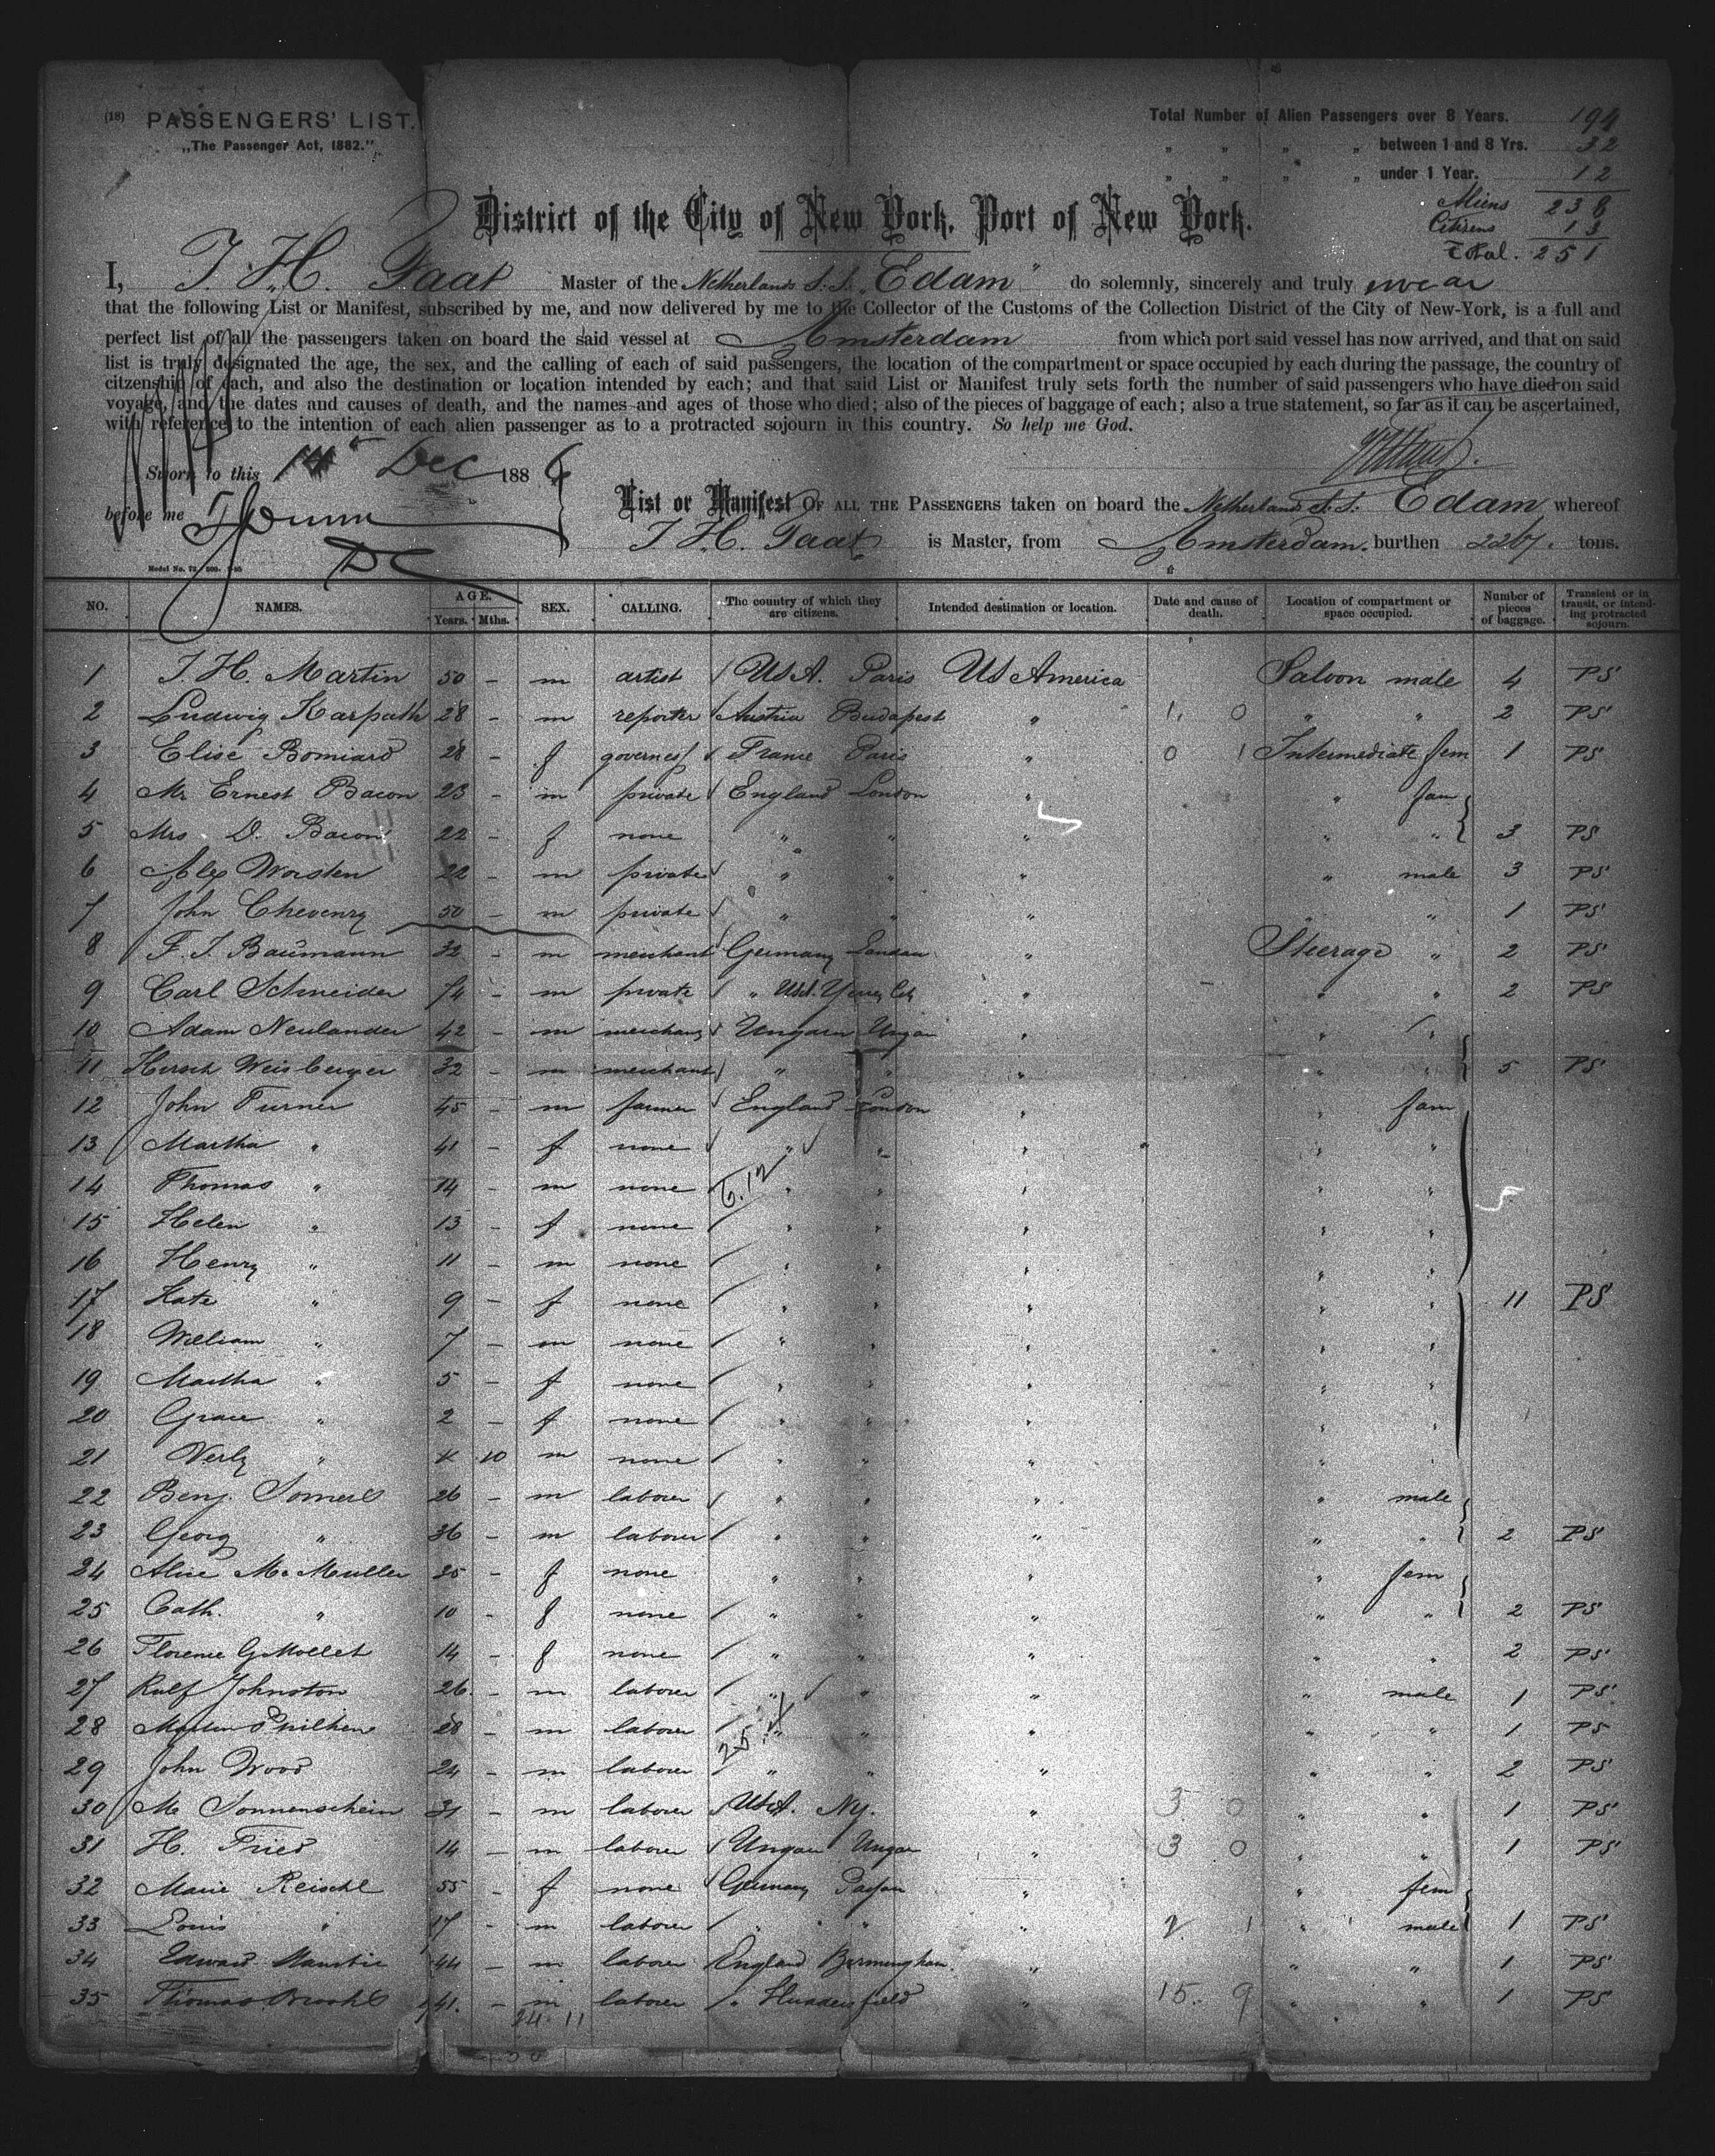 (18) PASSENGERS' LIST.
„The Passenger Act, 1882."
Total Number of Alien Passengers over 8 Years. 194
„ „ „ „ between 1 and 8 Yrs. 32
„ „ „ „ under 1 Year. 12
Aliens 238
Citizens 13
Total. 251
District of the City of New York, Port of New York.
I, T. H. Taat Master of the Netherlands S.S. „Edam" do solemnly, sincerely and truly swear
that the following List or Manifest, subscribed by me, and now delivered by me to the Collector of the Customs of the Collection District of the City of New-York, is a full and
perfect list of all the passengers taken on board the said vessel at Amsterdam from which port said vessel has now arrived, and that on said
list is truly designated the age, the sex, and the calling of each of said passengers, the location of the compartment or space occupied by each during the passage, the country of
citzenship of each, and also the destination or location intended by each; and that said List or Manifest truly sets forth the number of said passengers who have died on said
voyage, and the dates and causes of death, and the names and ages of those who died; also of the pieces of baggage of each; also a true statement, so far as it can be ascertained,
with reference to the intention of each alien passenger as to a protracted sojourn in this country. So help me God.
Sworn to this 14 Dec 1886
before me
List or Manifest OF ALL THE PASSENGERS taken on board the Netherlands S.S. Edam whereof
T. H. Taat is Master, from Amsterdam. burthen 2267. tons.
NO. NAMES. AGE. Years. Mths. SEX. CALLING. The country of which they are citizens. Intended destination or location. Date and cause of death. Location of compartment or space occupied. Number of pieces of baggage. Transient or in transit, or intending protracted sojourn.
1 T. H. Martin 50 - m artist USA. Paris US America Saloon male 4 PS
2 Ludwig Karpath 28 - m reporter Austria Budapest „ 1. 0 „ „ 2 PS
3 Elise Bomiard 28 - f governess France Paris „ 0 1 Intermediate fem 1 PS
4 Mr Ernest Bacon 23 - m private England London „ „ fam
5 Mrs. D. Bacon 22 - f none „ „ „ „ „ 3 PS
6 Alex Worsten 22 - m private „ „ „ „ male 3 PS
7 John Chevenry 50 - m private „ „ „ „ „ 1 PS
8 F. J. Baumann 32 - m merchant Germany Landau „ Steerage „ 2 PS
9 Carl Schneider 74 - m private „ „ „ „ 2 PS
10 Adam Neulander 42 - m merchant Ungarn Ungar „ „ „
11 Hersch Weisberger 32 - m merchant „ „ „ „ „ 5 PS
12 John Turner 45 - m farmer England London „ „ fam
13 Martha „ 41 - f none „ „ „ „ „
14 Thomas „ 14 - m none „ „ „ „ „
15 Helen „ 13 - f none „ „ „ „ „
16 Henry „ 11 - m none „ „ „ „ „
17 Kate „ 9 - f none „ „ „ „ „ 11 PS
18 William „ 7 - m none „ „ „ „ „
19 Martha „ 5 - f none „ „ „ „ „
20 Grace „ 2 - f none „ „ „ „ „
21 „ 10 m none „ „ „ „
22 Benj. Somers 26 - m laborer „ „ „ „ male
23 Georg „ 36 - m laborer „ „ „ „ „ 2 PS
24 Alice McMuller 25 - f none „ „ „ „ fem
25 Cath. „ 10 - f none „ „ „ „ „ 2 PS
26 Florence 14 - f none „ „ „ „ „ 2 PS
27 Rulf Johnston 26 - m laborer „ „ „ „ male 1 PS
28 28 - m laborer „ „ „ „ „ 1 PS
29 John Wood 24 - m laborer „ „ „ „ „ 2 PS
30 M Sonnenschein 31 - m laborer USA. NY. „ 3 0 „ „ 1 PS
31 H. Fried 14 - m laborer Ungar Ungar „ 3 0 „ „ 1 PS
32 Marie Reischl 55 - f none Germany „ „ fem
33 Louis „ 17 - m laborer „ „ „ 2 1 „ male 1 PS
34 Edward 44 - m laborer England Birmingham „ „ „ 1 PS
35 Thomas Brooks 41. - m laborer „ Huddersfield „ 15. 9 „ „ 1 PS
24 11